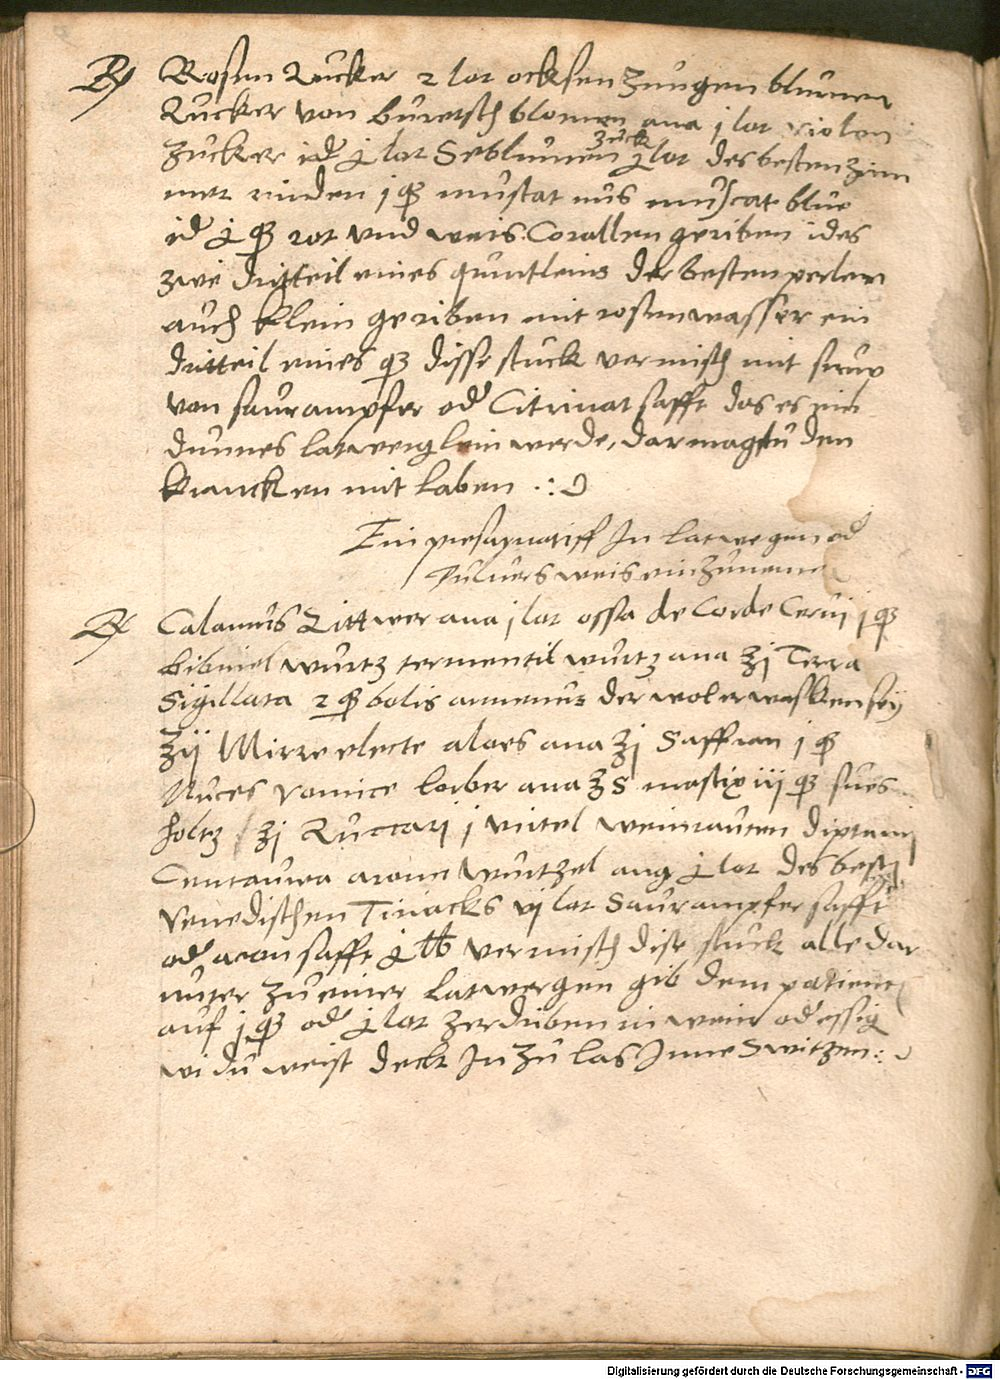 Rx Rosen Zucker 2 lot ocksen Zungen blumen
Zucker von buretsch blomen ana j lot violen
zucker id j lot Seblumen zuck j lot des besten zim
met rinden j q mustat nus muscat blue
id j q rot vnd weis Corallen geriben ides
zwe dritteil eines quintleins der besten perlein
auch klein geriben mit rosenwasser ein
dritteil eines q disse stuck vermisch mit sirup
von saurampfer od Citrinat safft das es ein
dunnes latwerglein werde, dar magstu den
krancken mit laben .:
Ein presaruatiff In latwegen od
Puluers weis einzuneme
Rx Calamus Zittwer ana j lot ossa de Corde Cerui j q
bibinel wurtz termentil wurtz ana ʒj Terra
Sigillata 2 q bolis armenus der wol erwasken sey
ʒij Mirre electe aloes ana ʒj Saffran j q
Nuces vomice lorber ana ʒs mastix iij q sues
holtz ʒj Zuccari j virtel weinrauten diptami
Centaurea aronn wurtzel ana j lot des besten
Venedischen Tiriacks vj lot Saurampfer safft
od aron safft j lb vermisch dise stuck alle dar
unter zu einer latwergen gib dem patienten
auf j q od j lot zerdriben in wein od essig
wi du weist deck In zu las Inne Switzen :
Digitalisierung gefördert durch die Deutsche Forschungsgemeinschaft - DFG